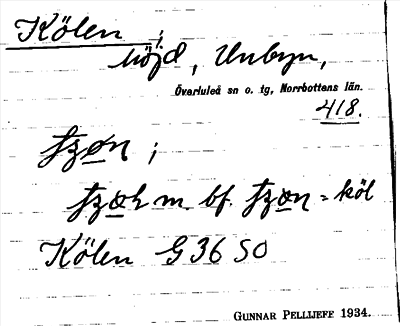 Kölen ;
höjd, Unbyn,
Överluleå sn o. tg, Norrbottens län.
418.
m. bf. = köl
Kölen G 36 SO
GUNNAR PELLIJEFF 1934.